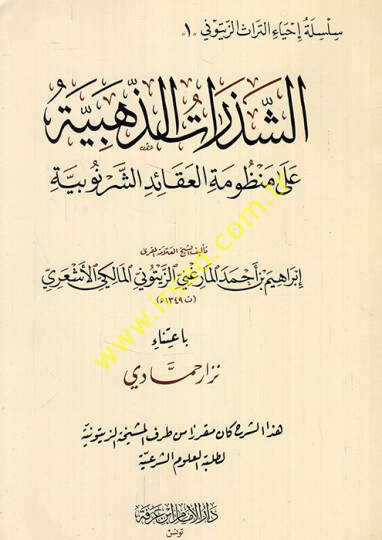 سلسلة إحياء التراث الزيتوني «١»
الشَّذَرَاتُ الذَّهَبِيَّة
عَلَى مَنْظُومَةِ العَقَائِدِ الشَّرْنُوبِيَّةِ
تأليف الشيخ العلامة المقرئ
إبْرَاهِيم بْن أَحْمَد المَارغْنِي الزَّيْتُونِي المَالِكِي الأَشْعَرِي
(ت ١٣٤٩ هـ)
باعتناء
نزار حمّادي
هذا الشرح كان مقررا من طرف المشيخة الزيتونية
لطلبة العلوم الشرعية
دار الإمام ابن عرفة
تونس
www.irsad.com.tr